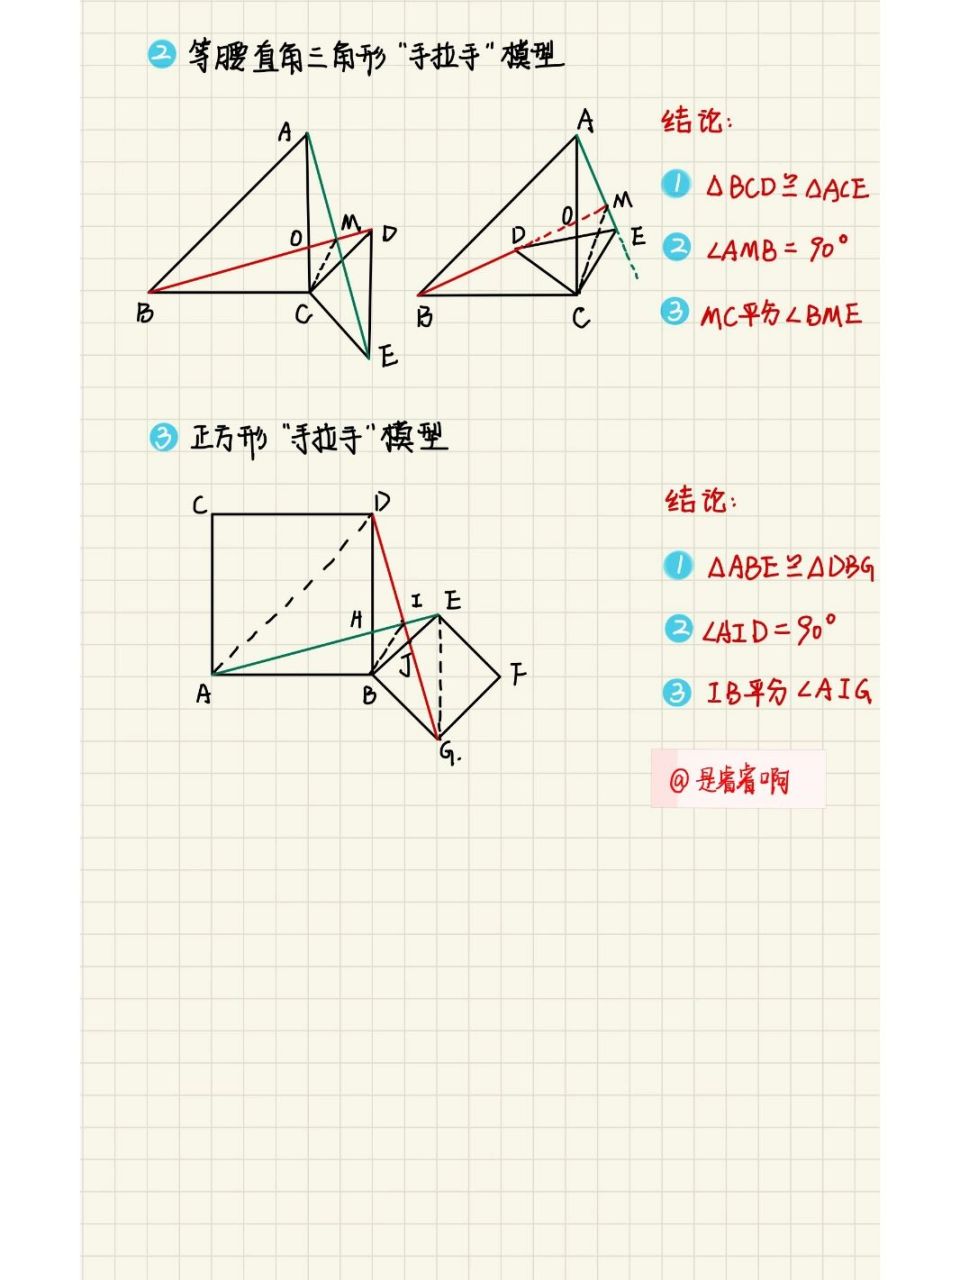 ② 等腰直角三角形“手拉手”模型
A
A
结论:
① △BCD≌△ACE
② ∠AMB=90°
③ MC平分∠BME
O
M
D
B
C
E
D
O
M
E
B
C
③ 正方形“手拉手”模型
C
D
H
I
E
J
A
B
F
G.
结论:
① △ABE≌△DBG
② ∠AID=90°
③ IB平分∠AIG
@是睿睿啊